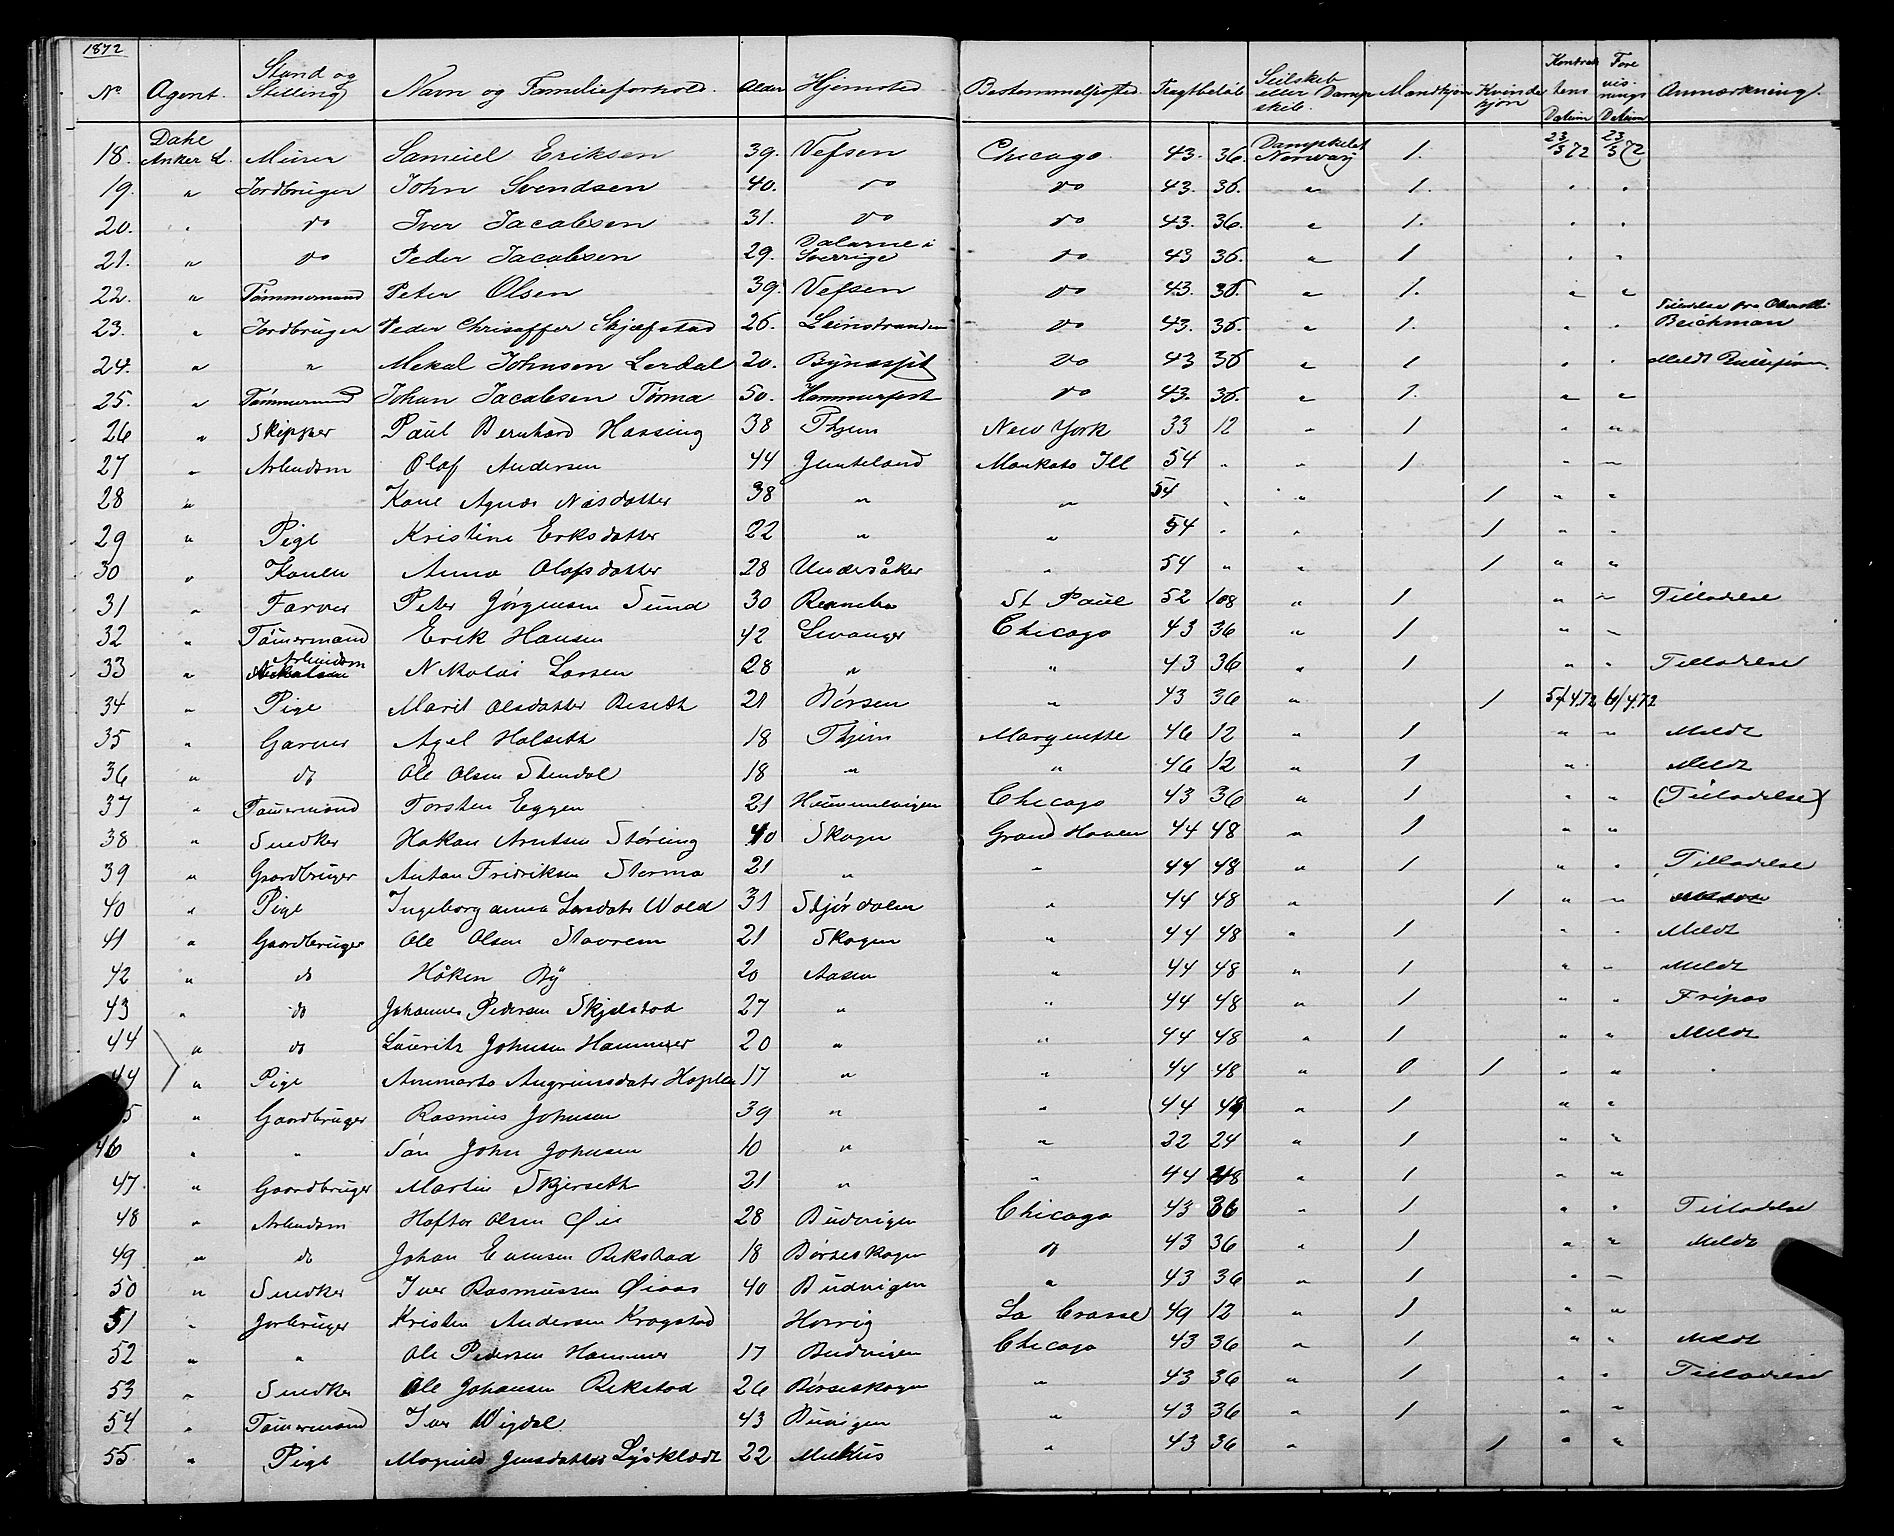 1872
No Agent. Stand og Stilling Navn og Familieforhold. Alder Hjemsted Bestemmelsessted Fragtbeløb Seilskib eller Dampskib. Mandkjøn Kvindekjøn Kontraktens Datum Forevisnings Datum Anmærkning.
18. Dahe Anker L. Murer Samuel Eriksen 39. Vefsen Chicago. 43. 36. Dampskibet Norway 1. 23/3 72 23/3 72
19. " Jordbruger John Svendsen 40. do do 43. 36. " 1. " "
20. " do Iver Jacobsen 31. do do 43. 36. " 1. " "
21. " do Peder Jacobsen 29. Dalarne i Sverrige do 43 36. " 1 " "
22. " Tømmermand Peter Olsen 39. Vefsen do 43. 36. " 1. " "
23. " Jordbruger Peder Chrisoffer Skjefstad 26. Leinstranden do 43. 36. " 1. " " Tilladelse fra Beichman
24. " " Mekal Johnsen Lerdal 20. do 43 36 " 1 " " Meldt
25. " Tømmermand Johan Jacobsen Tørma 50. Hammerfest do 43. 36. " 1. " "
26 " Skipper Paul Bernhard Hassing 38 Thjem New York 33 12 " 1 " "
27 " Arbeidsm Olaf Andersen 44 Jemteland Mankato Ill 54 " " 1 " "
28 " Kone Agnes Nilsdatter 38 " " 54 " " 1 " "
29 " Pige Kristine Erksdatter 22 " " 54 " " 1 " "
30 " Konen Anna Olofsdatter 28 Undersåker " 54 " " 1 " "
31 " Farver Peter Jørgensen Sund 30 Rennebo St Paul 52 108 " 1 " " Tilladelse
32 " Tømermand Erik Hansen 42 Levanger Chicago 43 36 " 1 " "
33 " Arbeidsm Nikolai Larsen 28 " " 43 36 " 1 " " Tilladelse
34 " Pige Marit Olsdatter Beseth 21 Børsen " 43 36 " 1 5/4.72 6/4.72
35 " Garver Axel Holseth 18 Thjem Marquette 46 12 " 1 " " Meldt
36 " do Ole Olsen Stendal 18 " " 46 12 " 1 " Meldt
37 " Tømermand Torsten Eggen 21 Hummelvigen Chicago 43 36 " 1 " " (Tilladelse)
38 " Snedker Hakon Arntsen Støring 40 Skogn Grand Haven 44 48 " 1 " "
39 " Gaardbruger Anton Fridriksen Storma 21 " " 44 48 " 1 " " Tilladelse
40 " Pige Ingeborganna Larsdatr Wold 31 Stjørdalen " 44 48 " 1 " "
41 " Gaardbruger Ole Olsen Stavrem 21 Skogen " 44 48 " 1 " " Meldt
42 " do Håken By 20 Aasen " 44 48 " 1 " " Meldt
43 " do Johannes Pedersen Skjelstad 27 " " 44 48 " 1 " " Fripas
44 " do Lauritz Johnsen Hammer 20 " " 44 48 " 1 " " Meldt
44 " Pige Annmarta Angrimsdatr Hoplen 17 " " 44 48 " 0 1 " " "
5 " Gaardbruger Rasmus Johnsen 39 " " 44 48 " 1 " "
46 " " Søn John Johnsen 10 " " 22 24 " 1 " "
47 " Gaardbruger Martin Skjerseth 21 " " 44 48 " 1 " "
48 " Arbeidsm Haftor Olsen Øie 28 Budvigen Chicago 43 36 " 1 " " Tilladelse
49 " do Johan Evensen Rekstad 18 Børseskogen do 43 36 " 1 " " Meldt
50 " Snedker Iver Rasmussen Øiaas 40 Budvigen " 43 36 " 1 " "
51 " Jorbruger Kristen Andersen Krogstad Horrig La Crosse 49 12 " 1 " "
52 " " Ole Pedersen Hammer 17 Budvigen Chicago 43 36 " 1 " " Meldt
53 " Snedker Ole Johansen Rekstad 26 Børseskogen " 43 36 " 1 " " Tilladelse
54 " Tømermand Iver Wigdal 43 Buvigen " 43 36 " 1 " "
55 " Pige Magnild Jensdatter Lysklædt 22 Melhus " 43 36 " 1 " "